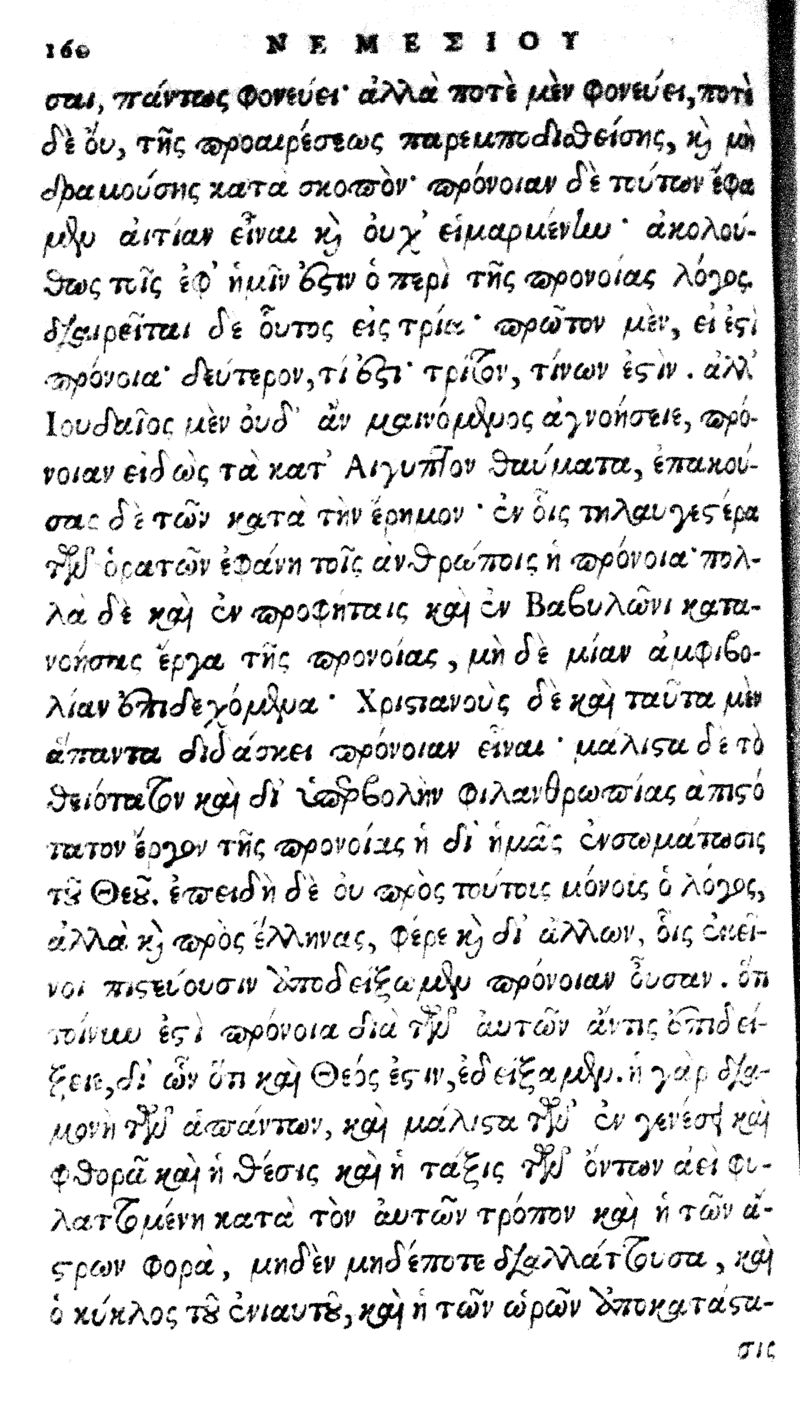 160 ΝΕΜΕΣΙΟΥ
σαι, πάντως φονεύει· ἀλλὰ ποτὲ μὲν φονεύει, ποτὲ
δὲ ὄυ, τῆς προαιρέσεως παρεμποδιθείσης, κ̀ μὴ
δραμούσης κατὰ σκοπὸν· πρόνοιαν δὲ τούτων ἔφα
μεν ἀιτίαν εἶναι κ̀ ὀυχ᾽ εἱμαρμένην· ἀκολού-
θως τοῖς ἐφ᾽ ἡμῖν ἐστιν ὁ περὶ τῆς προνοίας λόγος.
διαιρεῖται δὲ ὗτος εἰς τρία· πρῶτον μὲν, εἰ ἐστὶ
πρόνοια· δεύτερον, τί ἐστι· τρίτον, τίνων ἐστὶν. ἀλλ᾽
Ἰουδαῖος μὲν ὀυδ᾽ ἂν μαινόμενος ἀγνοήσειε, πρό-
νοιαν εἰδὼς τὰ κατ᾽ Αἰγυπτον θαύματα, ἐπακού-
σας δὲ τῶν κατὰ τὴν ἔρημον· ἐν οἷς τηλαυγεστέρα
τῶν ὁρατῶν ἐφάνη τοῖς ἀνθρώποις ἡ πρόνοια· πολ-
λὰ δὲ καὶ ἐν προφήταις καὶ ἐν Βαβυλῶνι κατα-
νοήσας ἔργα τῆς προνοίας, μὴ δὲ μίαν ἀμφιβο-
λίαν ἐπιδεχόμενα· Χριστιανοὺς δὲ καὶ ταῦτα μὲν
ἅπαντα διδάσκει πρόνοιαν εἶναι· μάλιστα δὲ τὸ
θειότατον καὶ δι᾽ ὑπερβολὴν φιλανθρωπίας ἀπιστό
τατον ἔργον τῆς προνοίας ἡ δι᾽ ἡμᾶς ἐνσωμάτωσις
τοῦ Θεοῦ. ἐπειδὴ δὲ ὀυ πρὸς τούτοις μόνοις ὁ λόγος,
ἀλλὰ κ̀ πρὸς ἕλληνας, φέρε κ̀ δι᾽ ἄλλων, οἷς ἐκεῖ-
νοι πιστεύουσιν ἀποδείξωμεν πρόνοιαν ὖσαν. ὅτι
τοίνυν ἐστὶ πρόνοια διὰ τῶν ἀυτῶν ἄντις ἐπιδεί-
ξειε, δι᾽ ὧν ὅτι καὶ Θεός ἐστιν, ἐδείξαμεν. ἡ γὰρ δια-
μονὴ τῶν ἁπάντων, καὶ μάλιστα τῶν ἐν γενέσει καὶ
φθορᾷ καὶ ἡ θέσις καὶ ἡ τάξις τῶν ὄντων ἀεὶ φυ-
λαττομένη κατὰ τὸν ἀυτῶν τρόπον καὶ ἡ τῶν ἄ-
στρων φορὰ, μηδὲν μηδέποτε διαλλάττουσα, καὶ
ὁ κύκλος τοῦ ἐνιαυτοῦ, καὶ ἡ τῶν ὡρῶν ἀποκατάστα-
σις